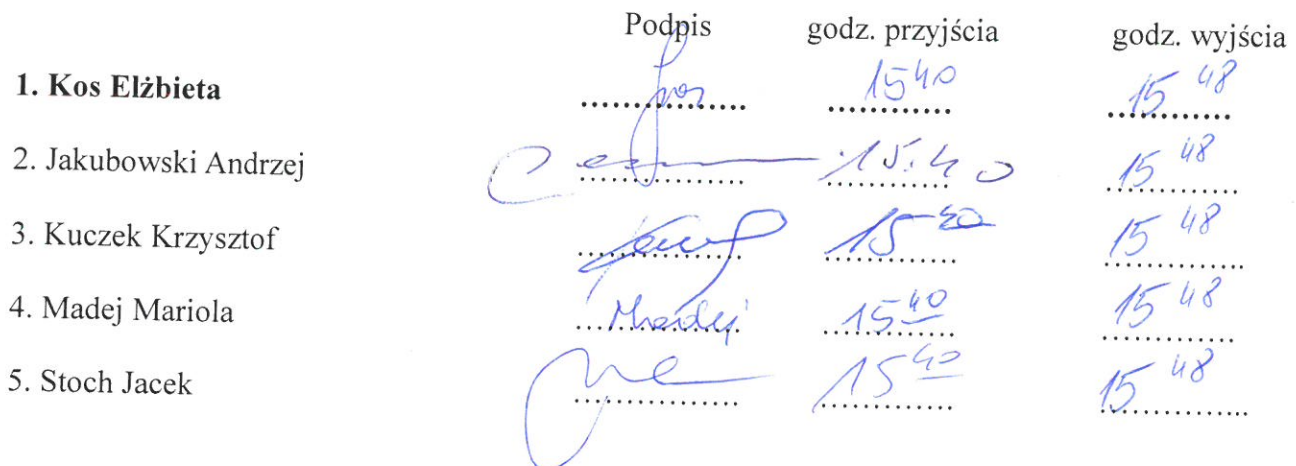 Podpis godz. przyjścia godz. wyjścia
1. Kos Elżbieta 15 40 15 48
2. Jakubowski Andrzej 15.40 15 48
3. Kuczek Krzysztof 15 40 15 48
4. Madej Mariola Madej 15 40 15 48
5. Stoch Jacek 15 40 15 48